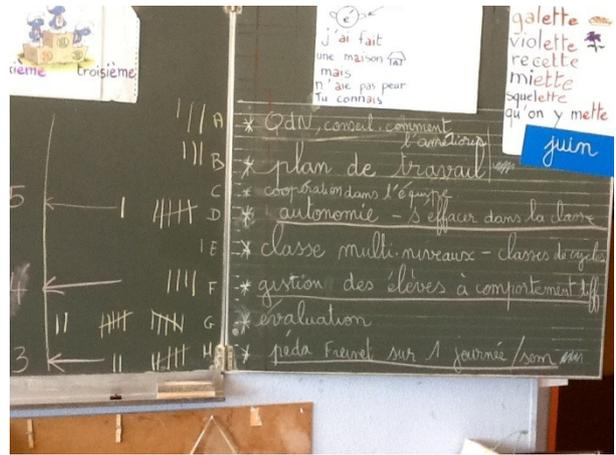 ième troisième
é
j'ai fait
une maison
mais
n'aie pas peur
Tu connais
galette
violette
recette
miette
squelette
qu'on y mette
juin
A * QdN, conseil. comment
l'améliorer
B * plan de travail
C * coopération dans l'équipe
5
D * autonomie - s'effacer dans la classe
E * classe multi-niveaux - classes de cycles
4
F * gestion des élèves à comportement diff
G * évaluation
3
H * péda Freinet sur 1 journée/sem